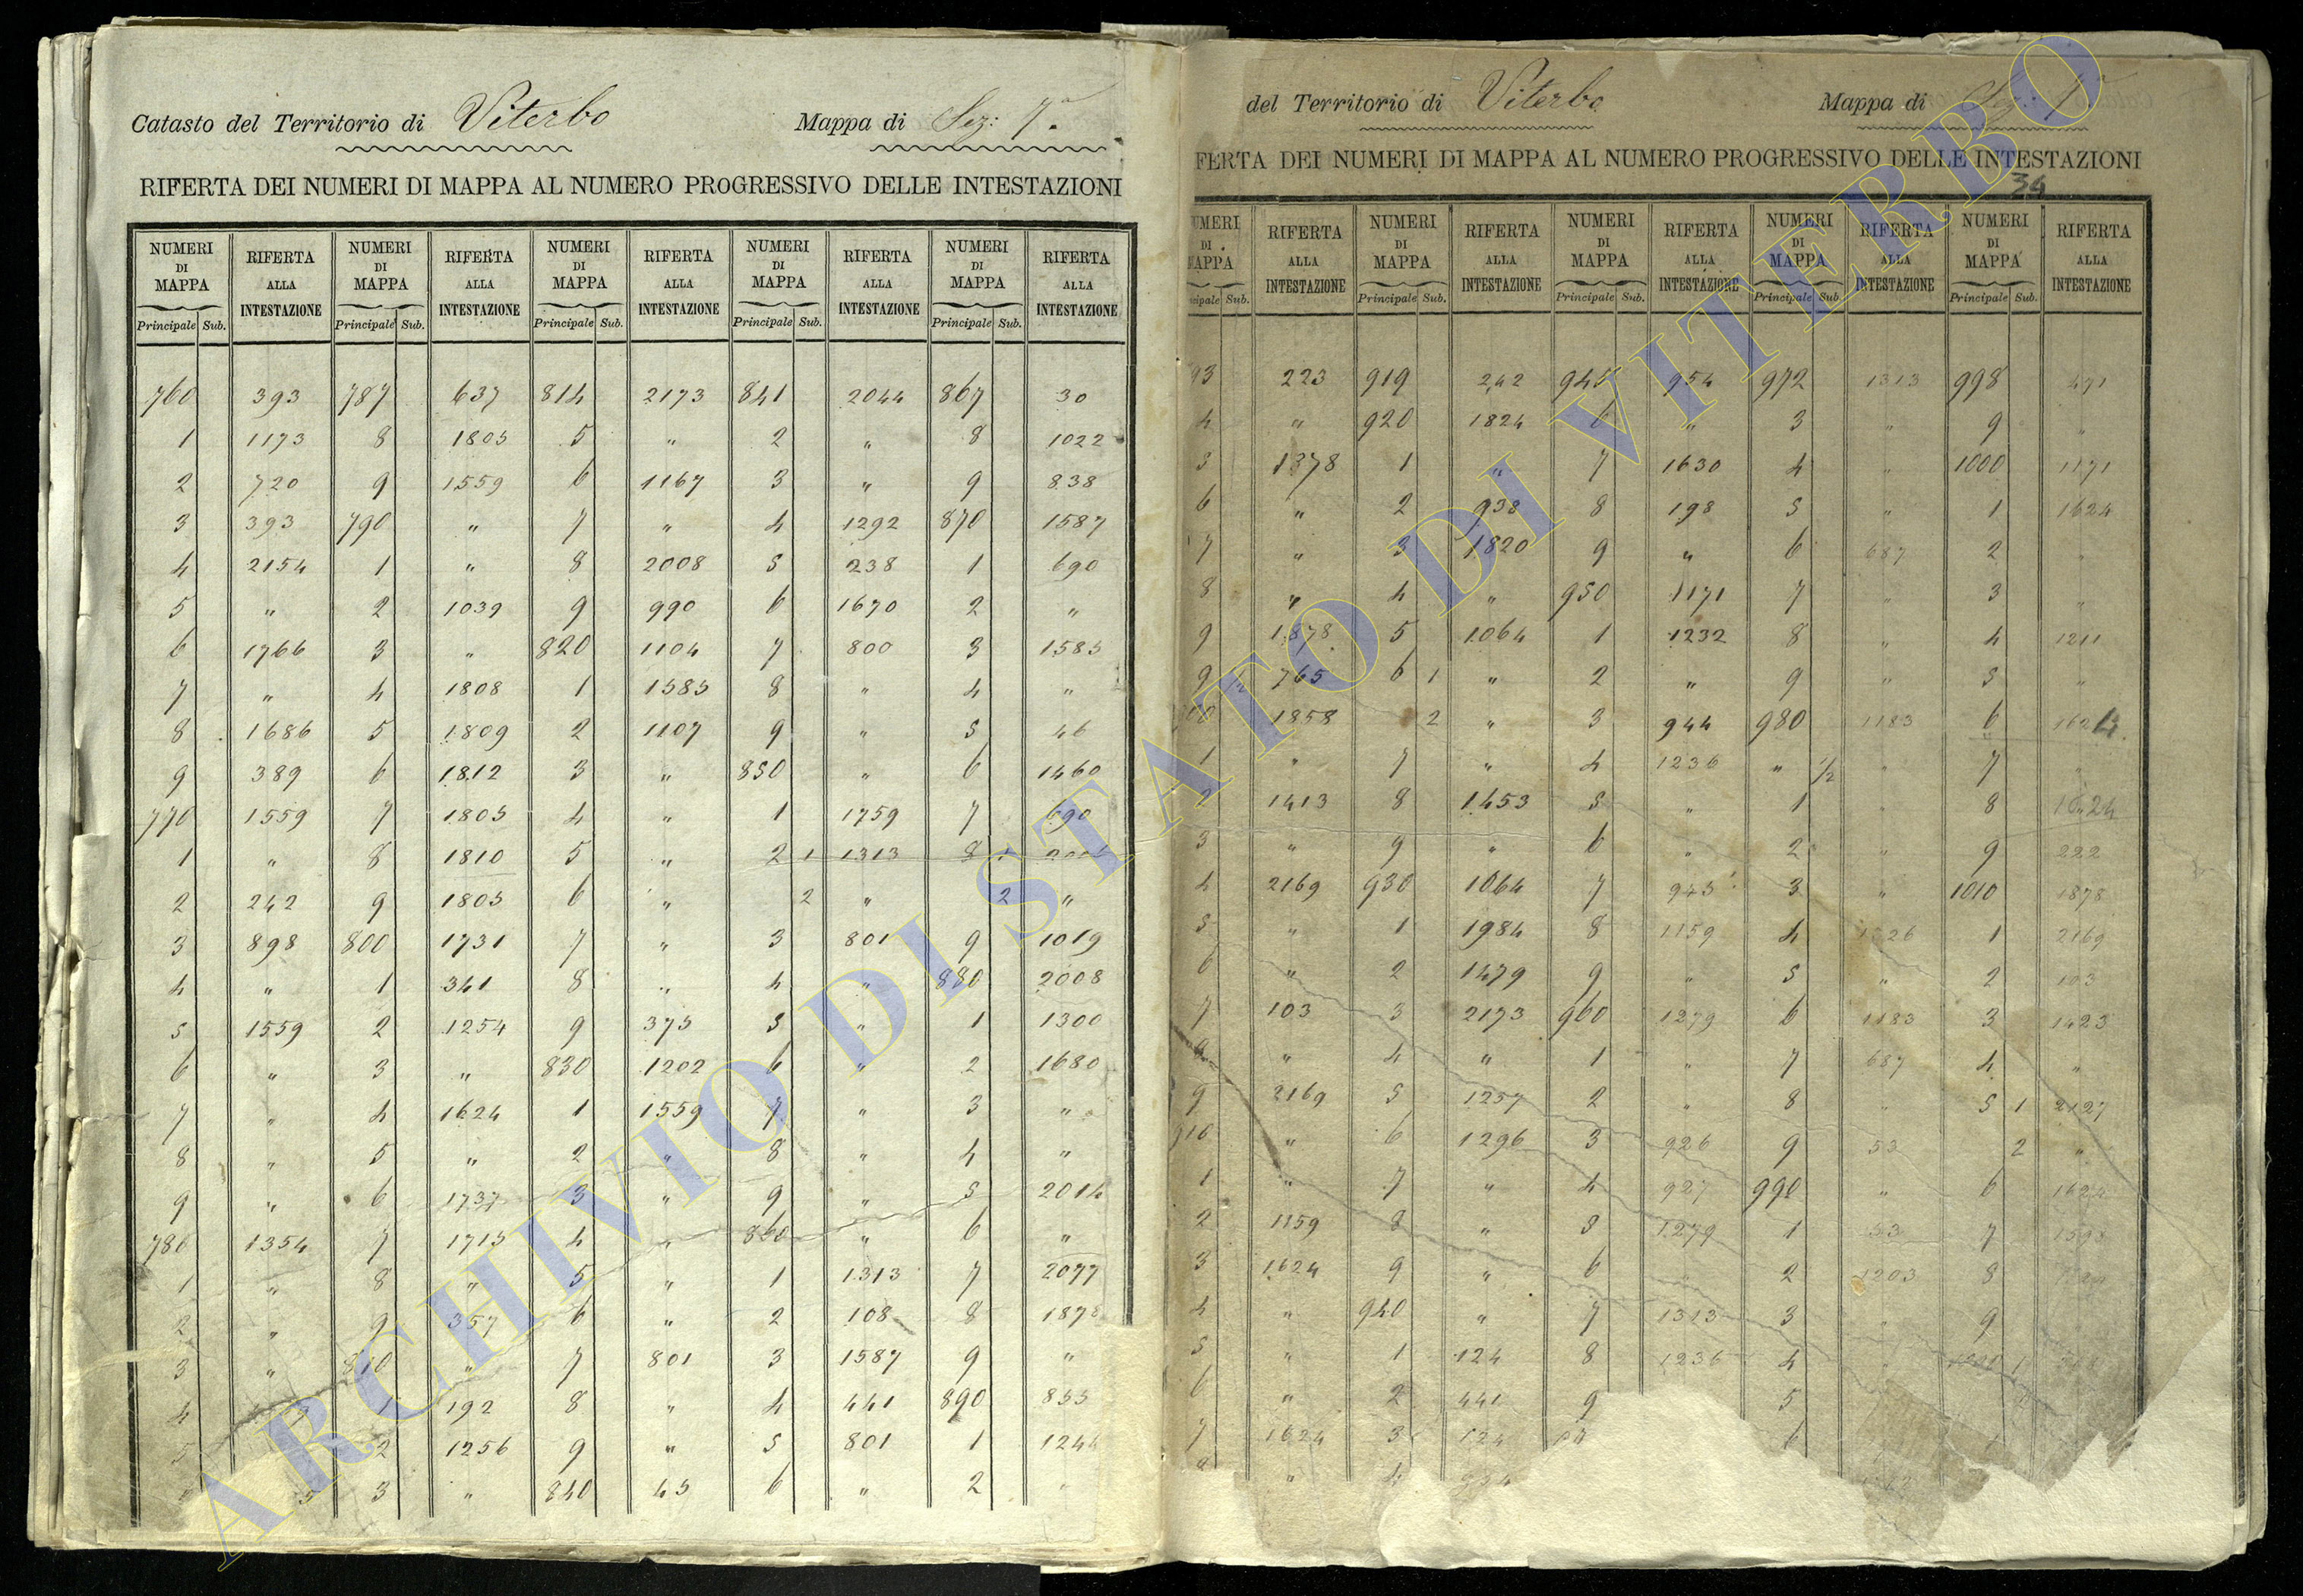 Catasto del Territorio di Viterbo Mappa di Sez: 1ª
RIFERTA DEI NUMERI DI MAPPA AL NUMERO PROGRESSIVO DELLE INTESTAZIONI
NUMERI DI MAPPA RIFERTA ALLA INTESTAZIONE NUMERI DI MAPPA RIFERTA ALLA INTESTAZIONE NUMERI DI MAPPA RIFERTA ALLA INTESTAZIONE NUMERI DI MAPPA RIFERTA ALLA INTESTAZIONE NUMERI DI MAPPA RIFERTA ALLA INTESTAZIONE
Principale Sub. Principale Sub. Principale Sub. Principale Sub. Principale Sub.
760 393 787 637 814 2173 841 2044 867 30
1 1173 8 1805 5 " 2 " 8 1022
2 720 9 1559 6 1167 3 " 9 838
3 393 790 " 7 " 4 1292 870 1587
4 2154 1 " 8 2008 5 238 1 690
5 " 2 1039 9 990 6 1670 2 "
6 1766 3 " 820 1104 7 800 3 1585
7 " 4 1808 1 1585 8 " 4 "
8 1686 5 1809 2 1107 9 " 5 46
9 389 6 1812 3 " 850 " 6 1460
770 1559 7 1805 4 " 1 1759 7 690
1 " 8 1810 5 " 2 1 1313 8 1
2 242 9 1805 6 " 2 " 2 "
3 898 800 1731 7 " 3 801 9 1019
4 " 1 341 8 " 4 " 880 2008
5 1559 2 1254 9 375 5 " 1 1300
6 " 3 " 830 1202 6 " 2 1680
7 " 4 1624 1 1559 7 " 3 "
8 " 5 " 2 " 8 " 4 "
9 " 6 1737 3 " 9 " 5 2014
780 1354 7 1715 4 " 860 " 6 "
1 " 8 " 5 " 1 1313 7 2077
2 " 9 357 6 " 2 108 8 1878
3 " 810 " 7 801 3 1587 9 "
4 1 192 8 " 4 441 890 855
5 2 1256 9 " 5 801 1
3 " 840 45 6 " 2 "
del Territorio di Viterbo Mappa di Sez: 1ª
FERTA DEI NUMERI DI MAPPA AL NUMERO PROGRESSIVO DELLE INTESTAZIONI
34
UMERI DI MAPPA RIFERTA ALLA INTESTAZIONE NUMERI DI MAPPA RIFERTA ALLA INTESTAZIONE NUMERI DI MAPPA RIFERTA ALLA INTESTAZIONE NUMERI DI MAPPA RIFERTA ALLA INTESTAZIONE NUMERI DI MAPPA RIFERTA ALLA INTESTAZIONE
cipale Sub. Principale Sub. Principale Sub. Principale Sub. Principale Sub.
93 223 919 242 945 954 972 1313 998 471
4 " 920 1824 6 " 3 " 9 "
5 1378 1 " 7 1630 4 " 1000 1171
6 " 2 938 8 198 5 " 1 1624
7 " 3 1820 9 " 6 687 2 "
8 " 4 " 950 1171 7 " 3 "
9 1878 5 1064 1 1232 8 " 4 1211
9 1/2 765 6 1 " 2 " 9 " 5 "
00 1858 2 " 3 944 980 1183 6 1624
1 " 7 " 4 1236 " 1/2 " 7 "
2 1413 8 1453 5 " 1 " 8 1624
3 " 9 " 6 " 2 " 9 222
4 2169 930 1064 7 943 3 " 1010 1878
5 " 1 1984 8 1159 4 1 2169
6 " 2 1479 9 " 5 " 2 103
7 103 3 2173 960 1279 6 1183 3 1423
" 4 " 1 " 7 687 4 "
9 2169 5 1257 2 " 8 " 5 1 2127
910 " 6 1296 3 926 9 53 2 "
1 " 7 " 4 927 990 " 6 1624
2 1159 8 " 5 1279 1 53 7
3 1624 9 " 6 " 2 1203 8
4 " 940 " 7 1313 3 " 9
5 " 1 124 8 1236 4 "
6 " 2 441 9 5
7 1624 3 124 6
" 4
ARCHIVIO DI STATO DI VITERBO